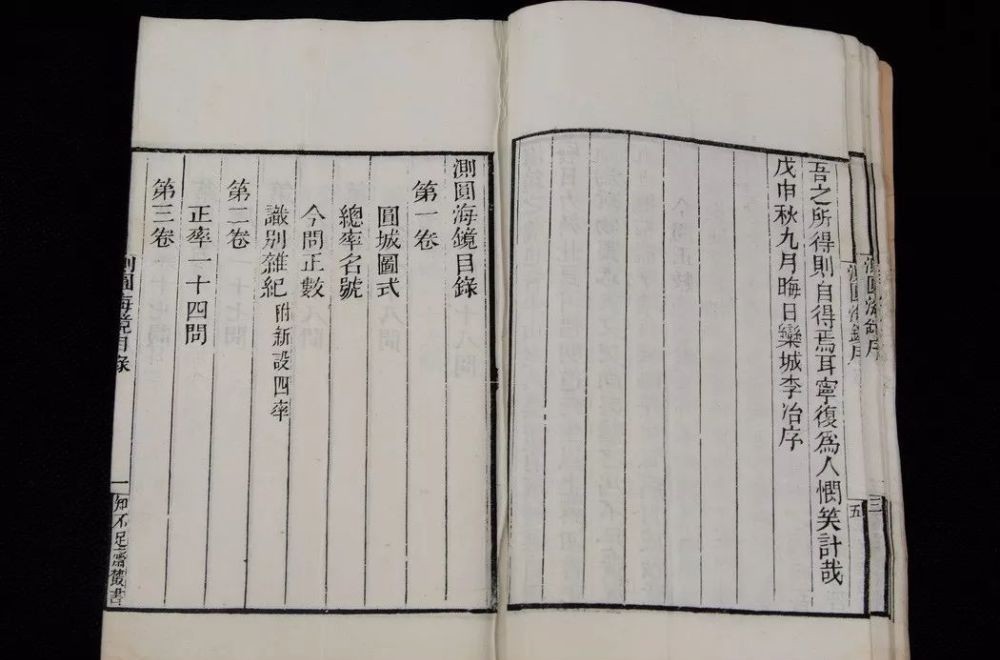 測圓海鏡序
三
測圓海鏡序
五
吾之所得則自得焉耳寧復為人憫笑計哉
戊申秋九月晦日欒城李冶序
測圓海鏡目錄
第一卷
圓城圖式
總率名號
今問正數
識別雜紀附新設四率
第二卷
正率一十四問
第三卷
測圓海鏡目錄
一
知不足齋叢書